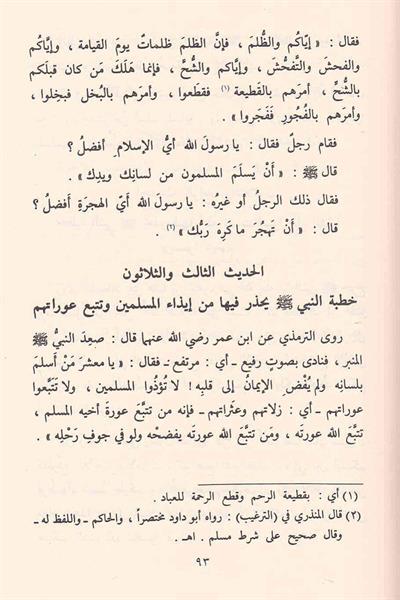 فقال : « إيّاكم والظُّلمَ ، فإنَّ الظلمَ ظلماتٌ يومَ القيامة ، وإيّاكم
والفحشَ والتَّفحُّشَ ، وإياكم والشُّحَّ ، فإنما هَلَكَ مَن كان قبلَكم
بالشُّحِّ ، أمرَهم بالقَطيعة (١) فقطَعوا ، وأمرَهم بالبُخل فبخِلوا ،
وأمرَهم بالفُجورِ فَفَجَروا » .
فقام رجلٌ فقال : يا رسولَ الله أيُّ الإسلامِ أفضلُ ؟
قال ﷺ : « أَنْ يَسلَمَ المسلمون من لسانِك ويدِك » .
فقال ذلك الرجلُ أو غيرُه : يا رسولَ الله أيّ الهجرةِ أفضلُ ؟
قال : « أَنْ تَهجُرَ ما كَرِهَ رَبُّك » (٢) .
الحديث الثالث والثلاثون
خطبة النبي ﷺ يحذر فيها من إيذاء المسلمين وتتبع عوراتهم
روى الترمذي عن ابن عمر رضي الله عنهما قال : صعِدَ النبيُّ ﷺ
المنبر ، فنادى بصوتٍ رفيع ـ أي : مرتفع ـ فقال : « يا معشرَ مَنْ أسلمَ
بلسانِه ولم يُفْضِ الإيمانُ إلى قلبِه ! لا تُؤذُوا المسلمين ، ولا تَتَبَّعوا
عوراتِهم ـ أي : زلاتهم وعثراتهم ـ فإنه من تتبَّع عورةَ أخيه المسلم ،
تتبَّعَ الله عورتَه ، ومَن تتبَّع الله عورتَه يفضحْه ولو في جوفِ رَحْلِه » .
(١) أي : بقطيعة الرحم وقطع الرحمة للعباد .
(٢) قال المنذري في (الترغيب) : رواه أبو داود مختصراً ، والحاكم ـ واللفظ له ـ
وقال صحيح على شرط مسلم . اهـ .
٩٣